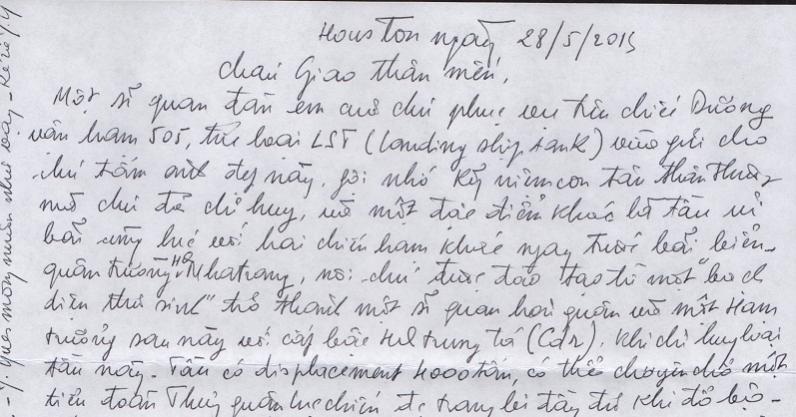 Houston ngày 28/5/2015
cháu Giao thân mến,
Một sĩ quan đàn em cũ chú phục vụ trên chiếc Dương
vận hạm 505, thứ loại LST (Landing ship tank) vừa gửi cho
chú tấm ảnh đẹp này, gợi nhớ kỷ niệm con tàu thân thương
mà chú đã chỉ huy, và một đặc điểm khác là tàu ủi
bãi cùng lúc với hai chiến hạm khác ngay trước bãi biển
quân trường HQ Nhatrang, nơi chú được đào tạo từ một "bạch
diện thư sinh" trở thành một sĩ quan hải quân và một Hạm
trưởng sau này với cấp bậc HQ trung tá (Cdr), khi chỉ huy loại
tàu này. Tàu có displacement 4000 tấn, có thể chuyên chở một
tiểu đoàn Thủy quân lục chiến trang bị đầy đủ khi đổ bộ-
- Y. ques mong muốn như vậy -